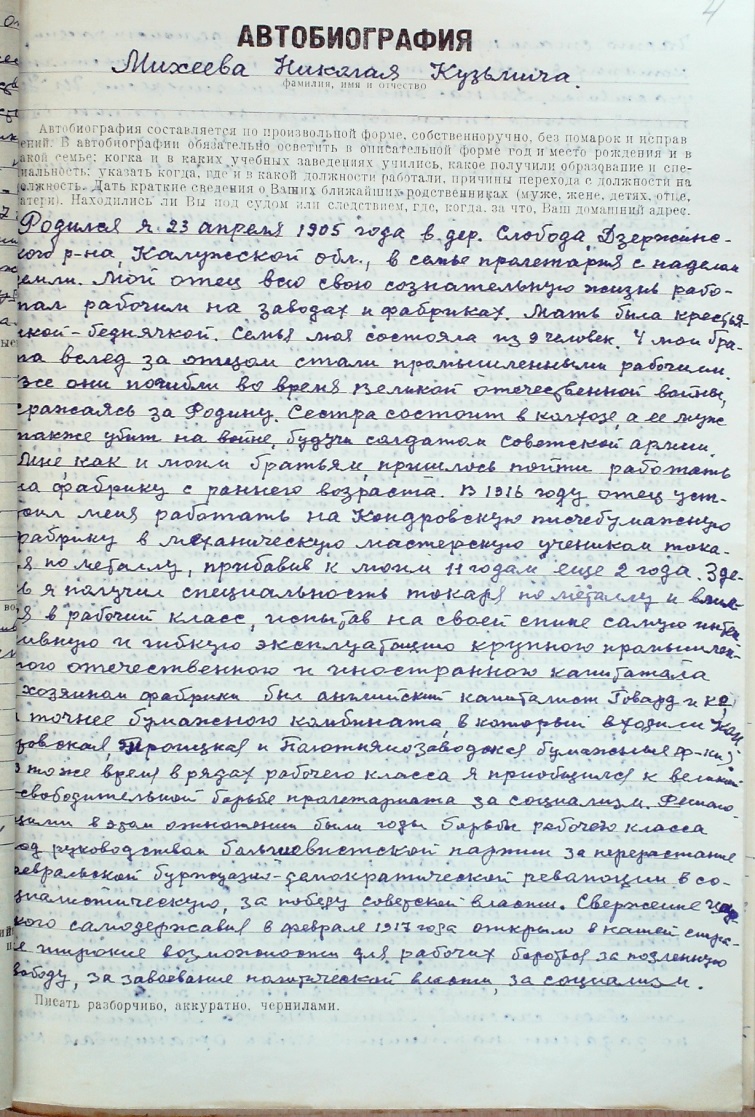 4
АВТОБИОГРАФИЯ
Михеева Николая Кузьмича.
фамилия, имя и отчество
Автобиография составляется по произвольной форме, собственноручно, без помарок и исправ
ений. В автобиографии обязательно осветить в описательной форме год и место рождения и в
акой семье; когка и в каких учебных заведениях учились, какое получили образование и спе-
иальность; указать когда, где и в какой должности работали, причины перехода с должности на
олжность. Дать краткие сведения о Ваших ближайших родственниках (муже, жене, детях, отце,
атери). Находились ли Вы под судом или следствием, где, когда, за что, Ваш домашний адрес.
Родился я 23 апреля 1905 года в дер. Слобода, Дзержинс-
кого р-на, Калужской обл., в семье пролетария с наделом
емли. Мой отец всю свою сознательную жизнь рабо-
тал рабочим на заводах и фабриках. Мать была крестья-
ской-беднячкой. Семья моя состояла из 9 человек. 4 мои бра-
та вслед за отцом стали промышленными рабочими.
все они погибли во время Великой отечественной войны,
сражаясь за Родину. Сестра состоит в колхозе, а ее муж
также убит на войне, будучи солдатом Советской армии.
Мне как и моим братьям, пришлось пойти работать
на фабрику с раннего возраста. В 1916 году отец уст-
оил меня работать на Кондровскую писчебумажную
фабрику в механическую мастерскую учеником тока-
я по металлу, прибавив к моим 11 годам еще 2 года. Зде-
ь я получил специальность токаря по металлу и влил-
я в рабочий класс, испытав на своей спине самую интен
ивную и гибкую эксплуатацию крупного промышлен-
ного отечественного и иностранного капитала
хозяином фабрики был английский капиталист Говард и ко,
точнее бумажного комбината, в который входили Кон
ровская, Троицкая и Полотнянозаводская бумажные ф-ки)
в тоже время в рядах рабочего класса я приобщился к великой
свободительной борьбе пролетариата за социализм. Решаю-
щими в этом отношении были годы борьбы рабочего класса
под руководством большевистской партии за перерастание
евральской буржуазно-демократической революции в со-
циалистическую, за победу советской власти. Свержение цар
кого самодержавия в феврале 1917 года открыло в нашей стра-
е широкие возможности для рабочих бороться за подлинную
вободу, за завоевание политической власти, за социализм.
Писать разборчиво, аккуратно, чернилами.